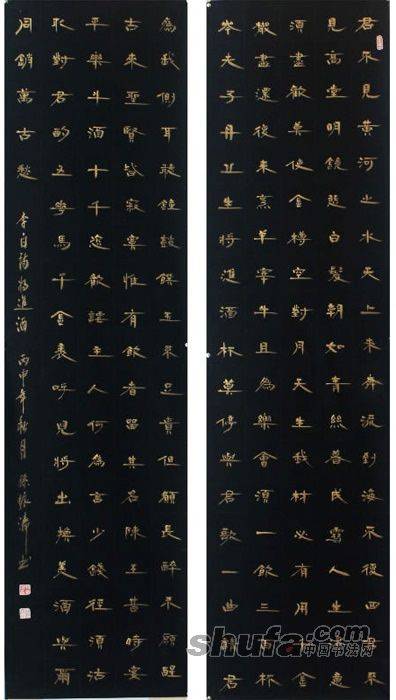 君不見黃河之水天上來奔流到海不復回君不
見高堂明鏡悲白髮朝如青絲暮成雪人生得意
須盡歡莫使金樽空對月天生我材必有用千金
散盡還復來烹羊宰牛且為樂會須一飲三百杯
岑夫子丹丘生將進酒杯莫停與君歌一曲請君
為我側耳聽鐘鼓饌玉不足貴但願長醉不願醒
古來聖賢皆寂寞惟有飲者留其名陳王昔時宴
平樂斗酒十千恣歡謔主人何為言少錢徑須沽
取對君酌五花馬千金裘呼兒將出換美酒與爾
同銷萬古愁 李白詩將進酒 丙申年秋月 書
shufa.com
中国书法网